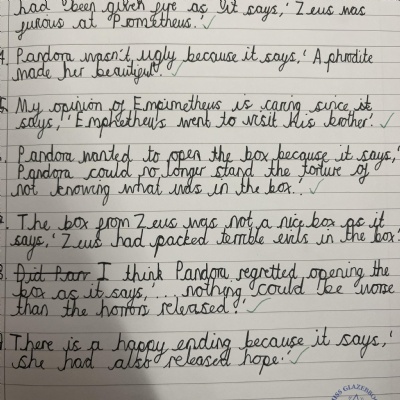 had been given fire as it says,' Zeus was
furious at Prometheus.'
4. Pandora wasn't ugly because it says,' Aphrodite
made her beautiful'.
5. My opinion of Empimetheus is caring since it
says,' Empketheus went to visit his brother.'
Pandora wanted to open the box because it says,'
Pandora could no longer stand the torture of
not knowing what was in the box.'.
The box from Zeus was not a nice box as it
says,' Zeus had packed terrible evils in the box'
8. Did Pan I think Pandora regretted opening the
box as it says,'... nothing could be worse
than the horrors released.'
There is a happy ending because it says,'
she had also released hope.'
GLAZEBRO